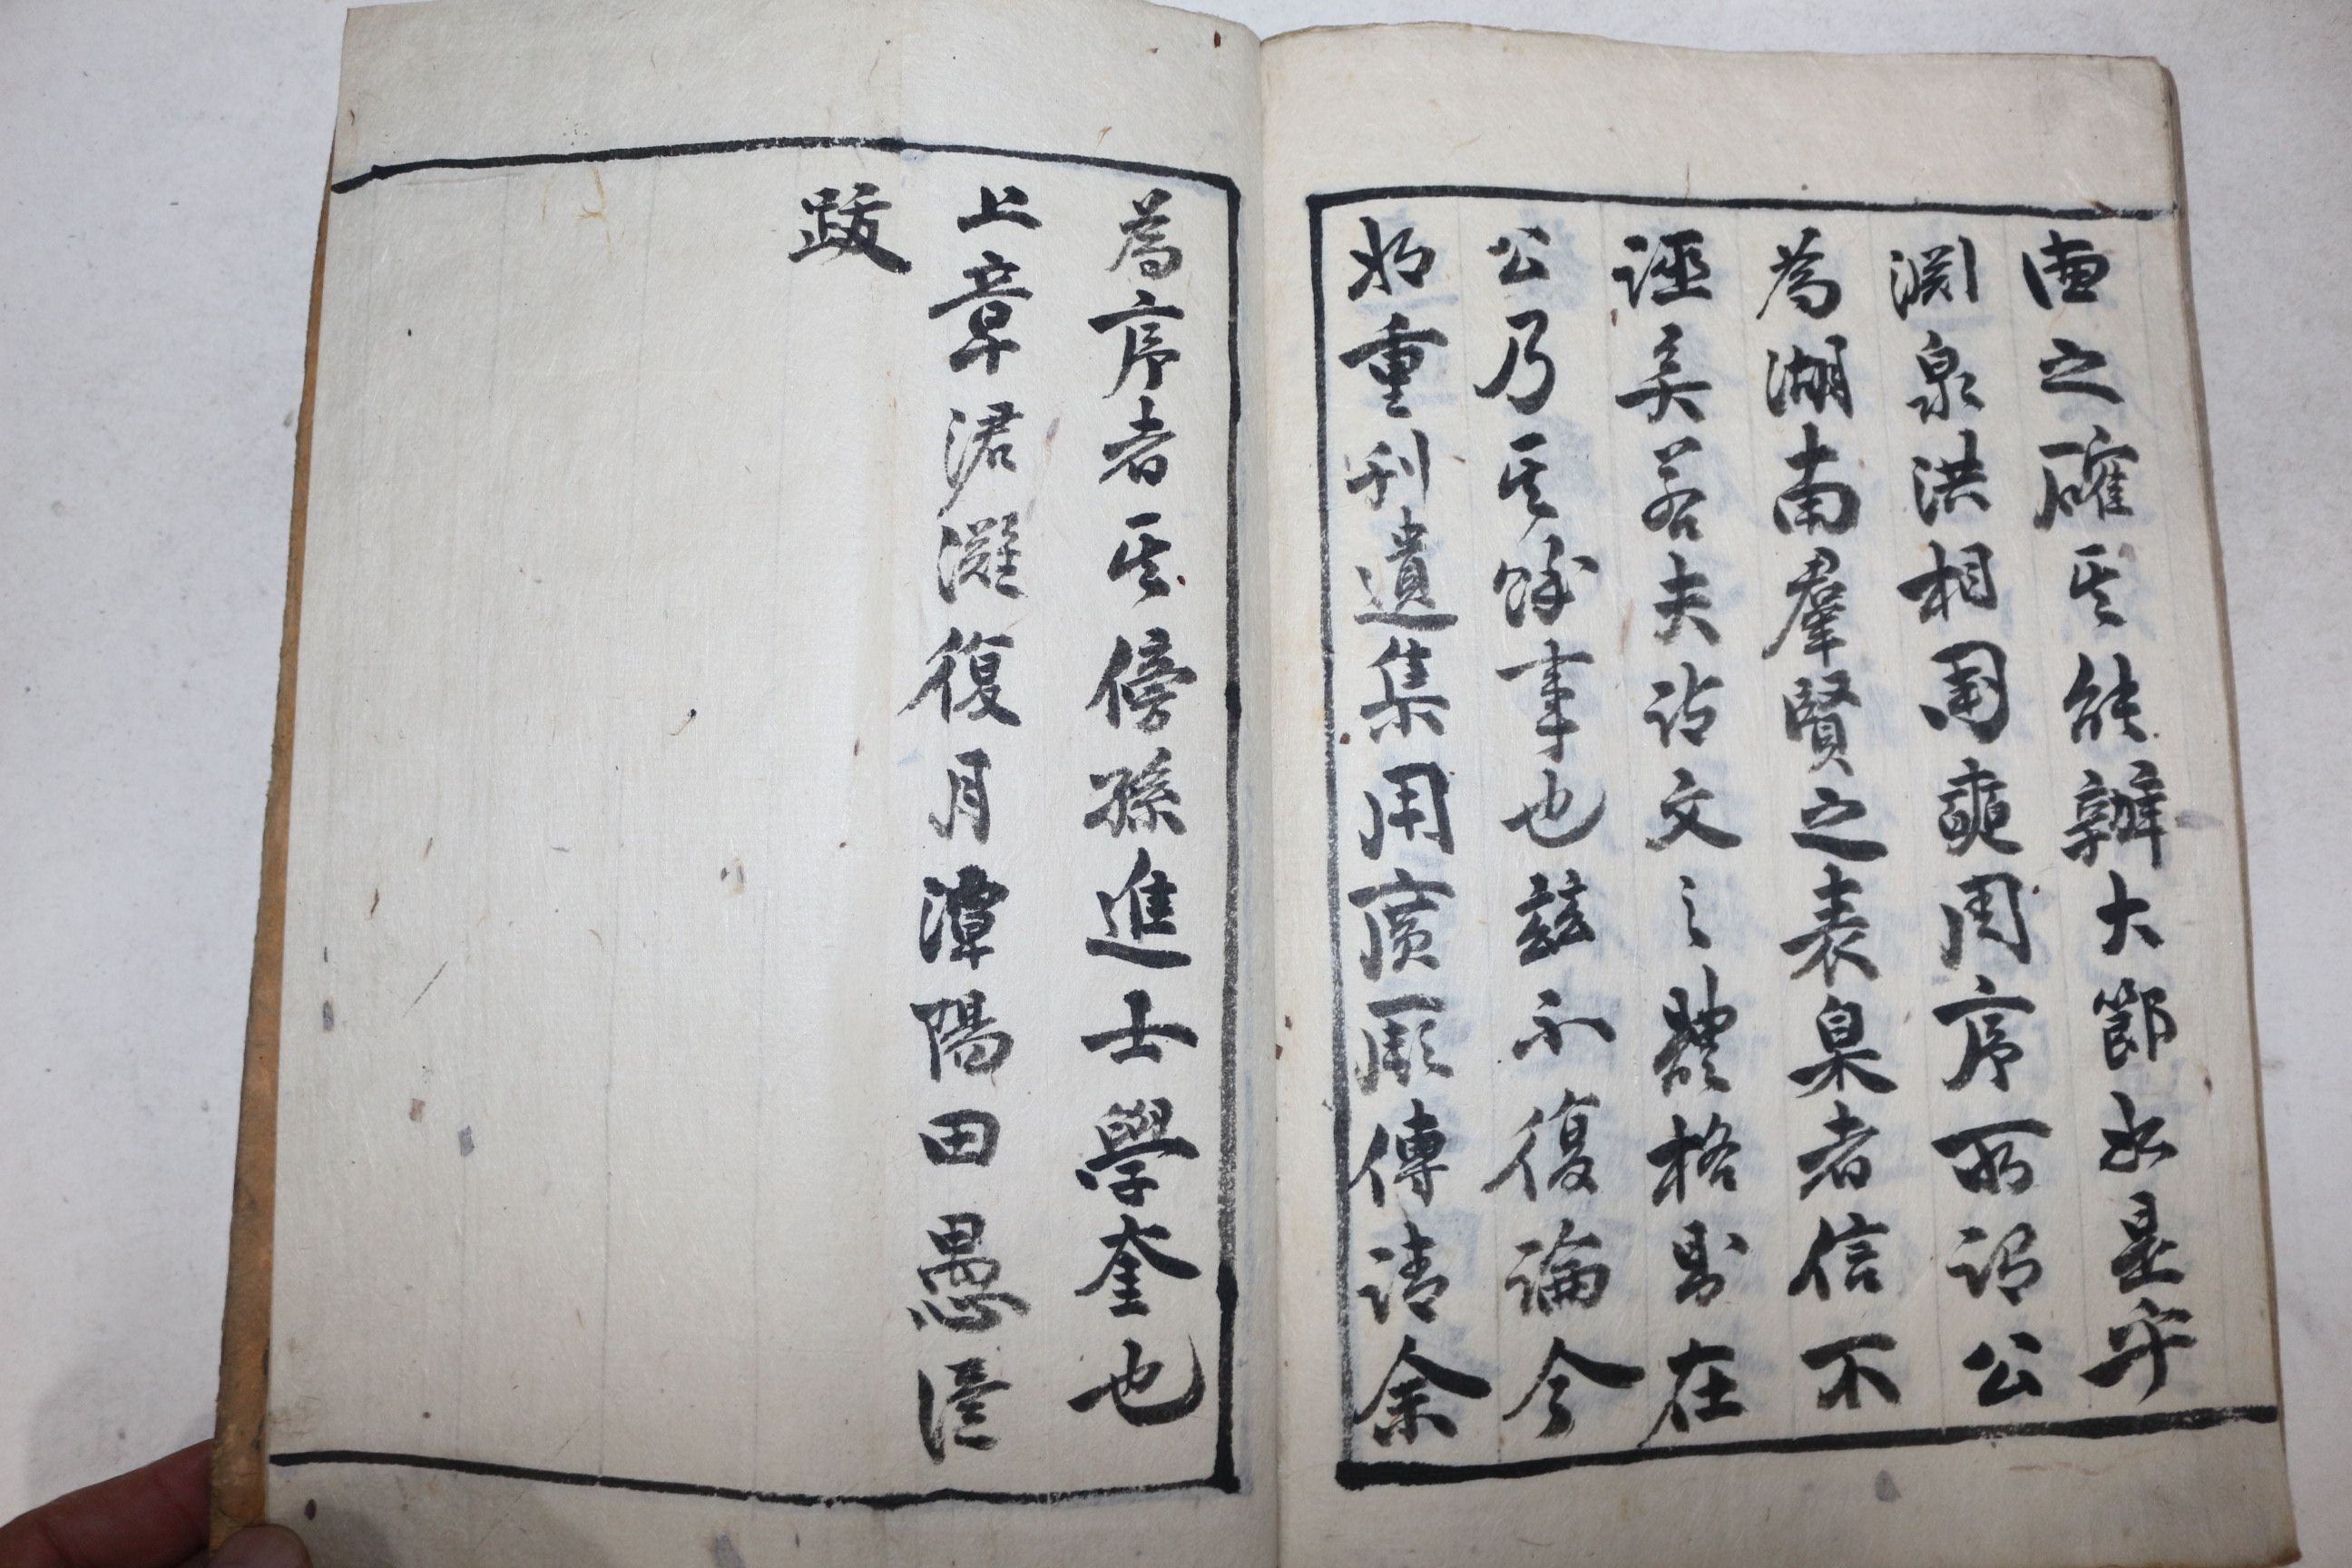 之確其能辦大節如是乎
淵泉洪相國奭周序所謂公
為湖南羣賢之表臬者信不
誣矣若夫詩文之體格則在
公乃其餘事也玆不復論今
將重刊遺集用廣厥傳請余
為序者其傍孫進士學奎也
上章涒灘復月潭陽田愚謹
跋